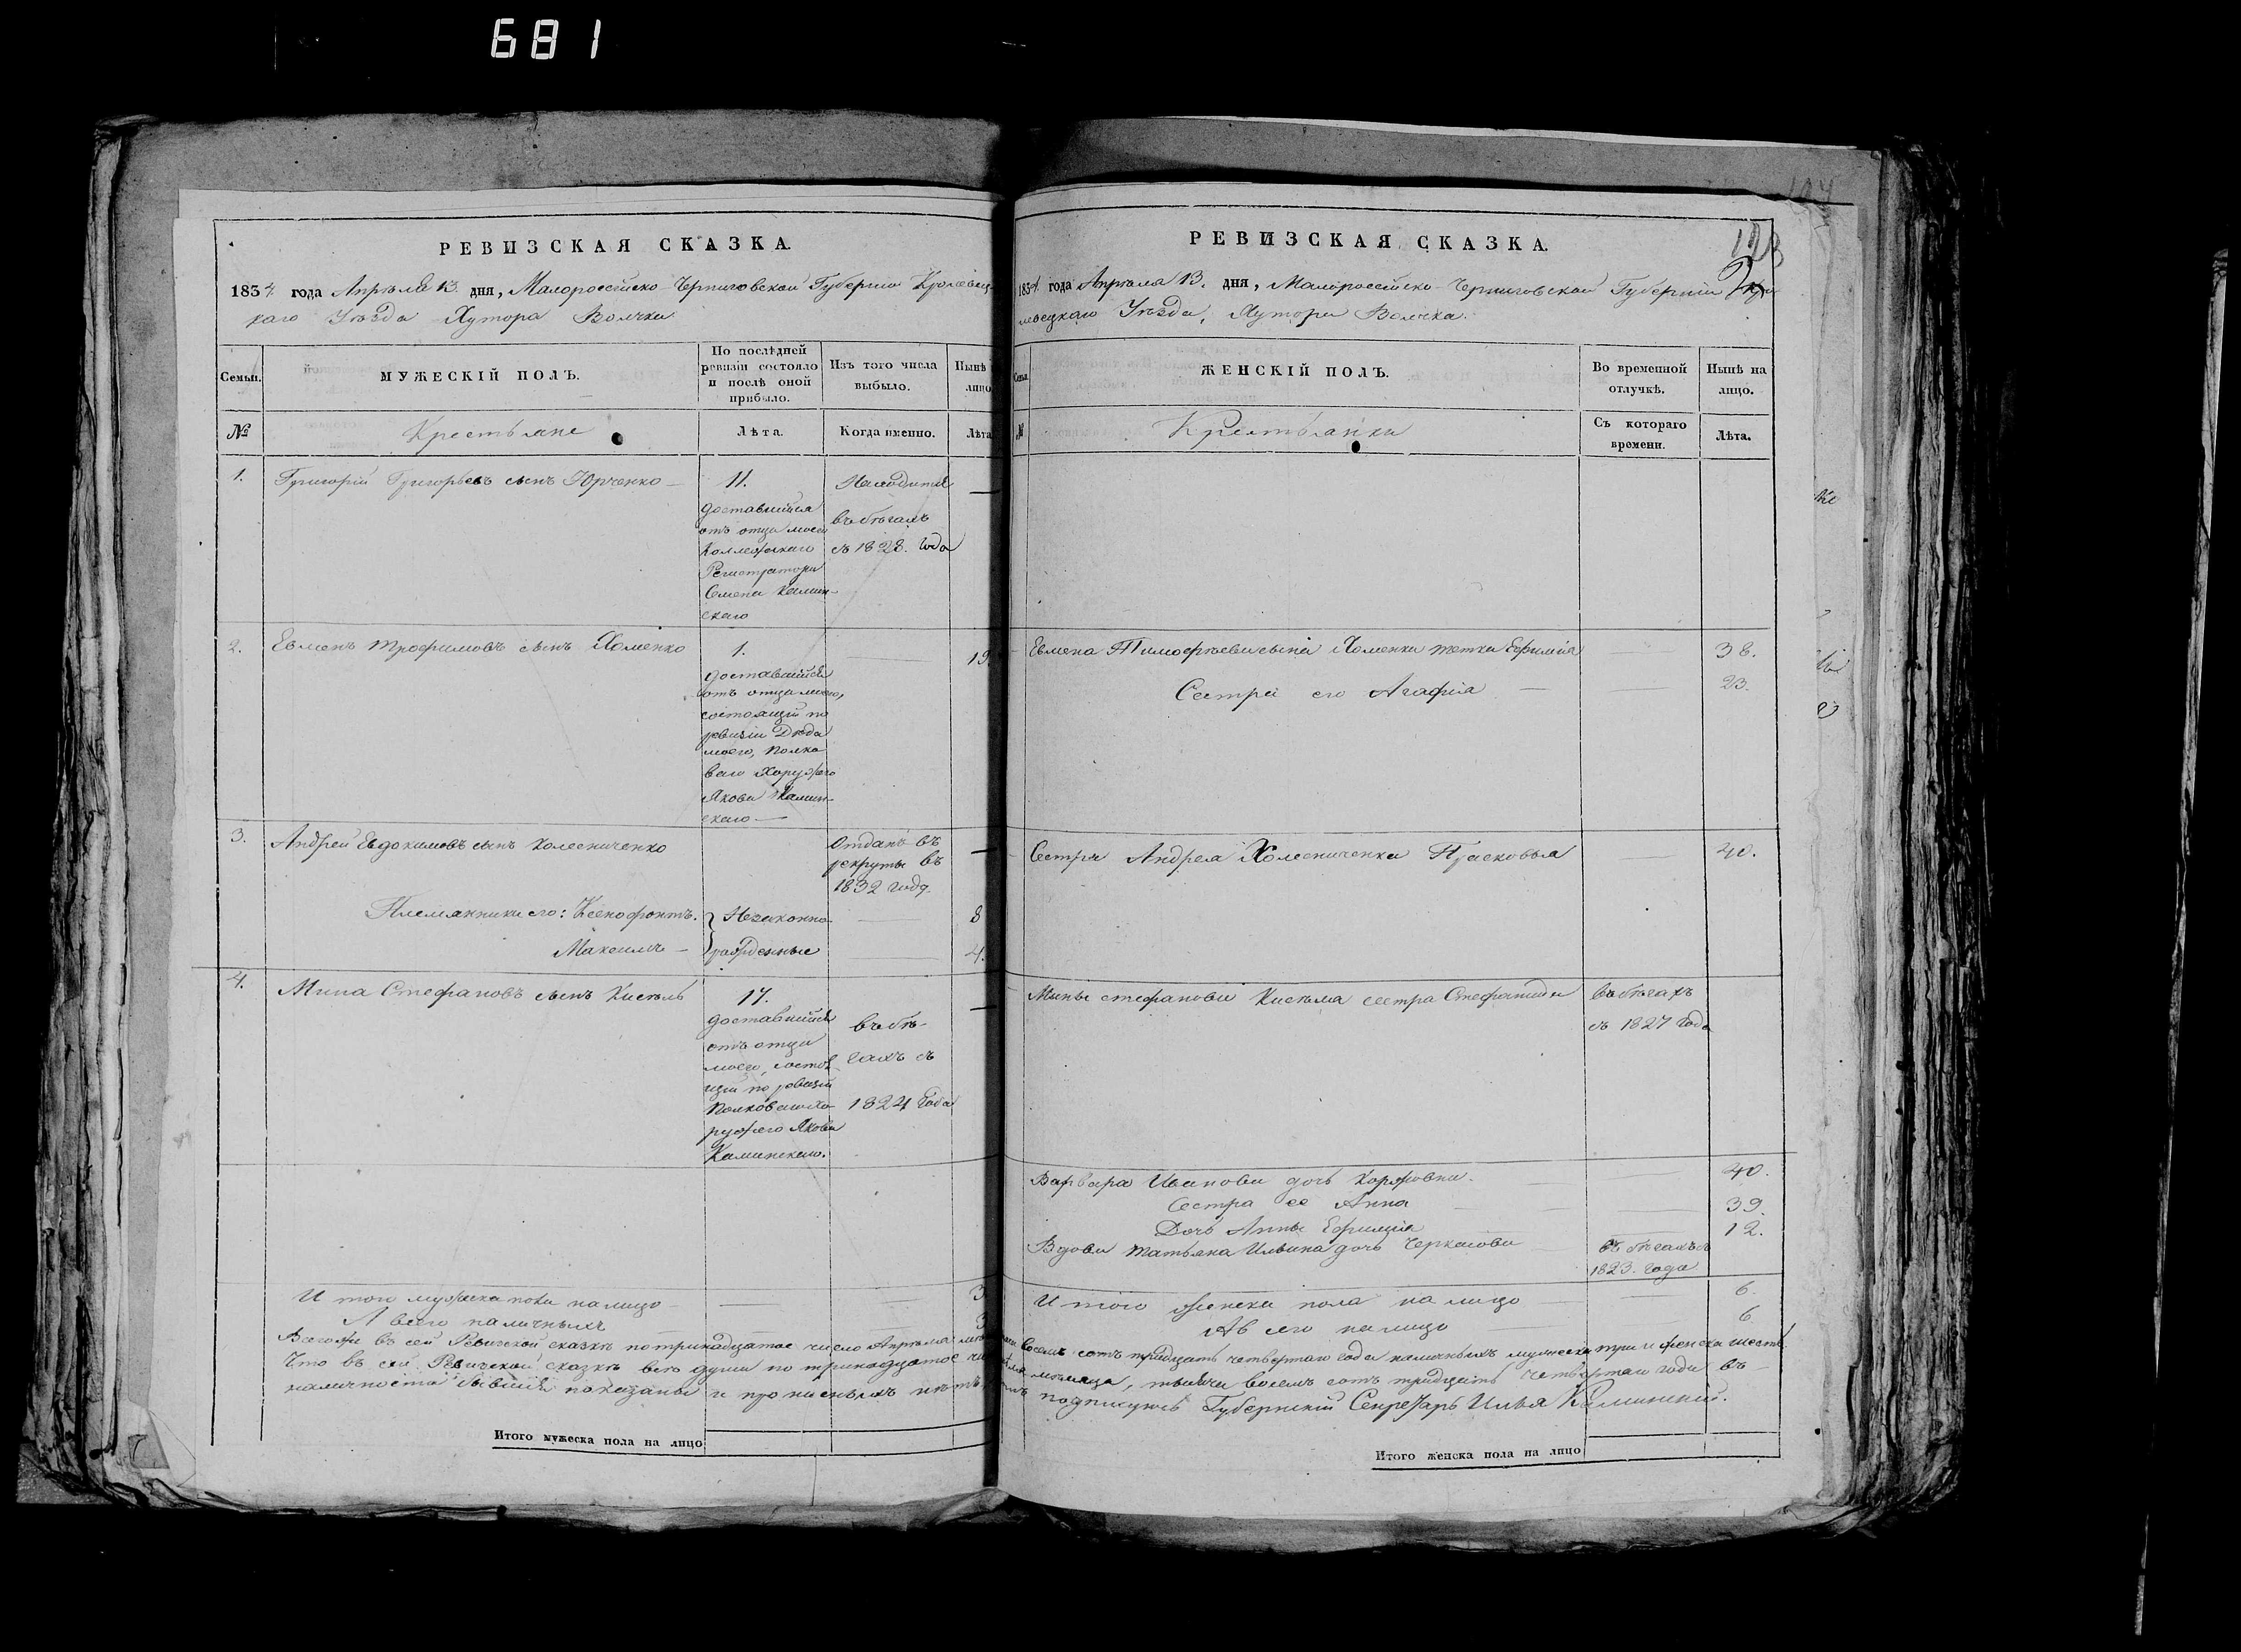 681
РЕВИЗСКАЯ СКАЗКА.
1834 года Апрѣля 13 дня, Малороссійско-Черниговской Губерніи Кролевец-
каго Уѣзда Хутора Волчка
Семьи.
МУЖЕСКІЙ ПОЛЪ.
По послѣдней
ревизіи состояло
и послѣ оной
прибыло.
Изъ того числа
выбыло.
Нынѣ
лицо
№
Крестьяне
Лѣта.
Когда именно.
Лѣта
1.
Григорій Григорьевъ сынъ Юрченко
11.
доставшійся
отъ отца моего
Коллежскаго
Регистратора
Семена Камин-
скаго
Находится
въ бѣгахъ
съ 1828. года
2.
Евменъ Трофимовъ сынъ Хоменко
1.
доставшійся
отъ отца моего,
состоящій по
ревизіи Дѣда
моего, полко
ваго Хоружаго
Якова Камин-
скаго
19
3.
Андрей Евдокимовъ сынъ Колесниченко
Отданъ въ
рекруты въ
1832 году.
Племянники его: Ксенофонтъ.
Незаконно-
8
Максимъ
рожденные
4.
4.
Мина Стефановъ сынъ Кисель
17.
доставшійся
отъ отца
моего, состоя
щій по ревизіи
Полковаго Хо-
ружаго Якова
Каминскаго.
въ бѣ-
гахъ съ
1824 года
Итого мужеска пола на лицо
3
А всего наличныхъ
3
Всего въ сей Ревизской сказкѣ по тринадцатое число Апрѣля
Что въ сей Ревизской сказкѣ всѣ души по тринадцатое
наличности бывшія показаны и прописныхъ нѣтъ
Итого мужеска пола на лицо
РЕВИЗСКАЯ СКАЗКА.
123
1834 года Апрѣля 13. дня, Малороссійско-Черниговской Губерніи
левецкаго Уѣзда, Хутора Волчка.
ЖЕНСКІЙ ПОЛЪ.
Во временной
отлучкѣ.
Нынѣ на
лицо.
Крестьянки
Съ котораго
времени.
Лѣта.
Евмена Тимофѣева сына Хоменка тетка Ефимія
38.
Сестра его Агафія
23.
Сестра Андрея Колесниченка Прасковья
40.
Мины Стефанова Киселя сестра Стефанида
въ бѣгахъ
съ 1827 года
Варвара Иванова дочь Коржовна.
40.
Сестра ее Анна
39.
Дочь Анны Ефимія
12.
Вдова Татьяна Ильина дочь Черкасова
въ бѣгахъ съ
1823. года
Итого женска пола на лицо
6.
А всего на лицо
6
восемь сотъ тридцать четвертаго года наличныхъ мужеска три и женска шесть
мѣсяца, тысяча восемь сотъ тридцать четвертаго года въ
подписуюсь Губернскій Секретарь Илья Каминскій.
Итого женска пола на лицо